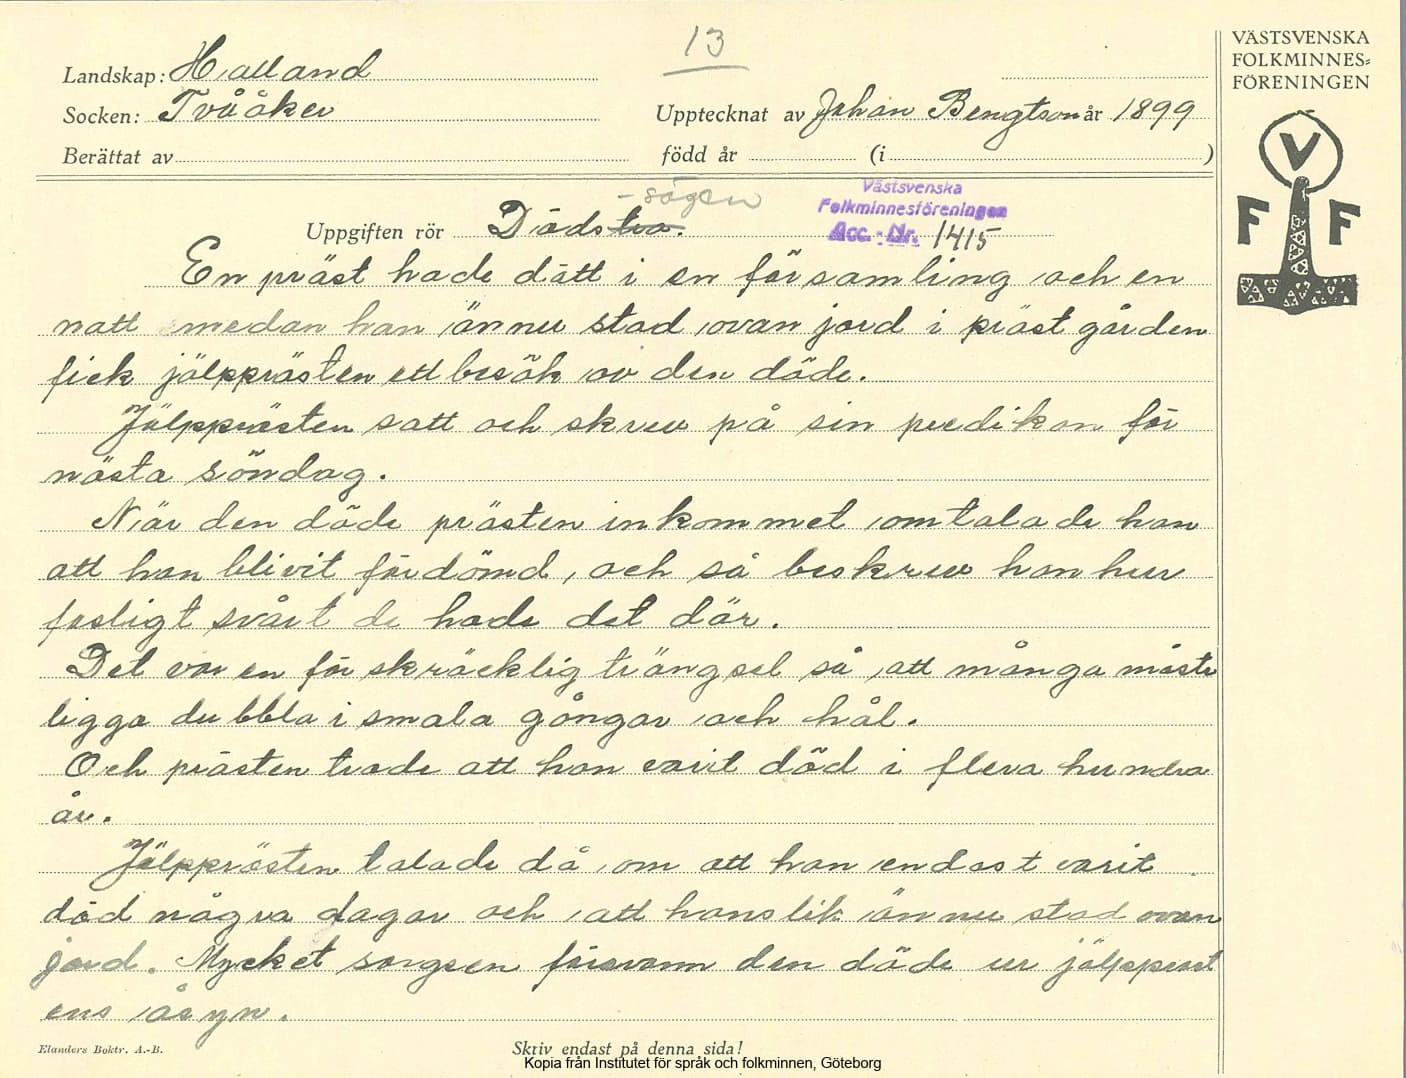 13
VÄSTSVENSKA
FOLKMINNES=
FÖRENINGEN
Landskap: Halland
Socken: Tvååker
Upptecknat av Johan Bengtson år 1899
Berättat av
född år (i )
-sägen
Västsvenska
Folkminnesföreningen
Acc.-Nr. 1415
Uppgiften rör Dödstro.
V
F F
En präst hade dött i en församling och en
natt medan han ännu stod ovan jord i präst gården
fick jälpprästen ett besök av den döde.
Jälpprästen satt och skrev på sin predikan för
nästa söndag.
När den döde prästen inkommet omtalade han
att han blivit fördömd, och så beskrev han hur
fasligt svårt de hade det där.
Det var en för skräcklig trängsel så att många måste
ligga dubbla i smala gångar och hål.
Och prästen trode att han varit död i flera hundra
år.
Jälpprästen talade då om att han endast varit
död några dagar och att hans lik ännu stod ovan
jord. Mycket sorgsen försvann den döde ur jälppräst
ens åsyn.
Elanders Boktr. A.-B.
Skriv endast på denna sida!
Kopia från Institutet för språk och folkminnen, Göteborg